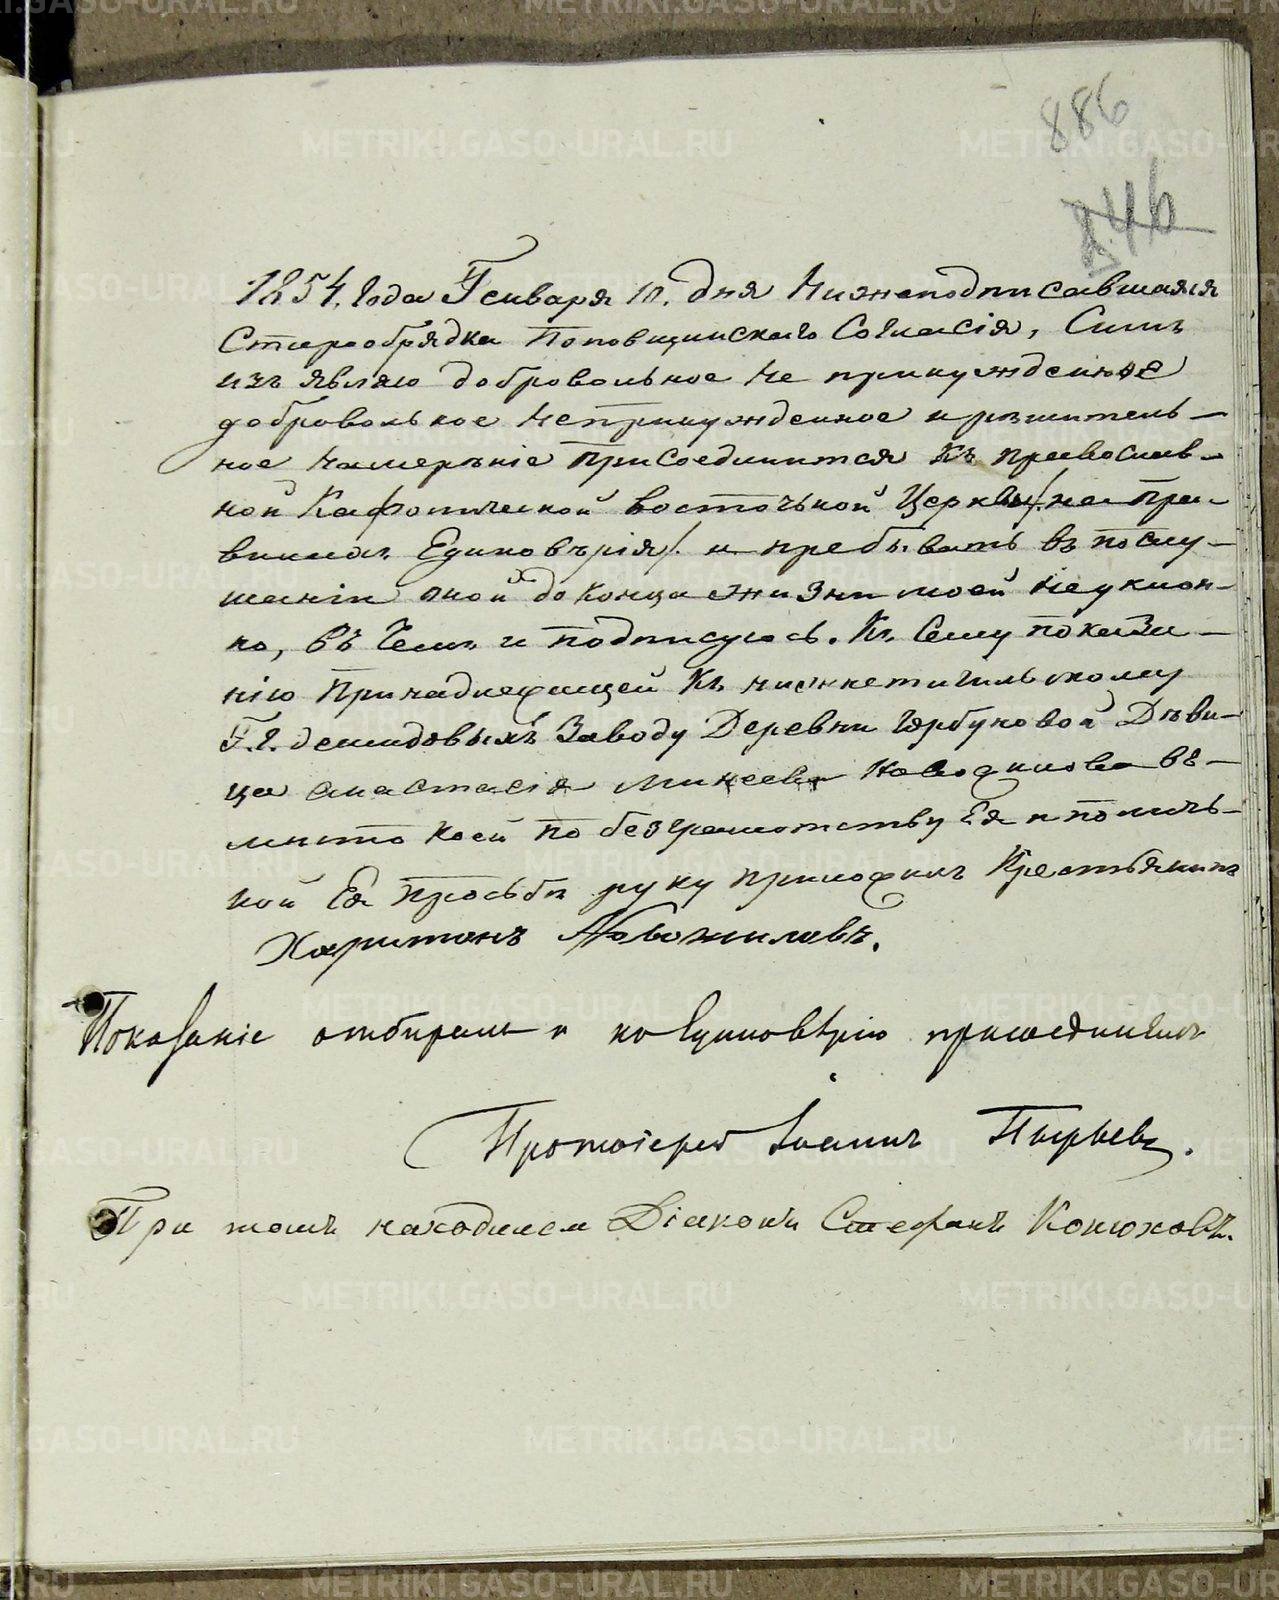 886
846
1854. Года Генваря 10. дня Нижеподписавшаяся
Старообрядка Поповщинскаго Согласія, Симъ
изъявляю добровольное не принужденное
добровольное непринужденное и решитель-
ное намереніе присоединится Къ православ-
ной Кафолической восточьной Церкви /на пра-
вилахъ Единоверія/ и пребывать въ послу-
шаніи оной до конца жизни моей неуклон-
но, въ чемъ и подписуюсь. Къ Сему показа-
нію Принадлежащей Къ нижнетагильскому
Г.Г. демидовыхъ Заводу Деревни Горбуновой Деви-
ца анастасія Минеева вь-
место коей по безграмотству Ея и по личь-
ной Ея прозьбе руку приложилъ Крестьянинъ
Харитонъ Новожиловъ.
Показаніе отбиралъ и по Единоверію присоединилъ
Протоіерей Іоаннъ Пырьевъ.
При томъ находился Діаконъ Стефанъ Конюховъ.
METRIKI.GASO-URAL.RU